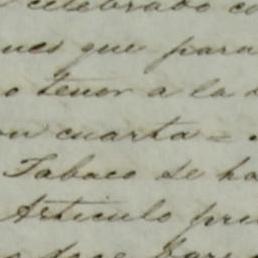 celebrado co
ues que para
o tenor a la
on cuarta =
Tabaco se ha
Articulo pri